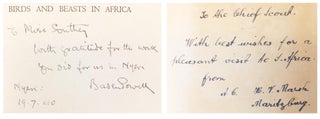 BIRDS AND BEASTS IN AFRICA
To Miss Southey
with gratitude for the work
you did for us in Nyeri
Baden Powell
Nyeri
19.7.40
To the Chief Scout.
With best wishes for a
pleasant visit to S. Africa
from
E. V. Marsh
Maritzburg.